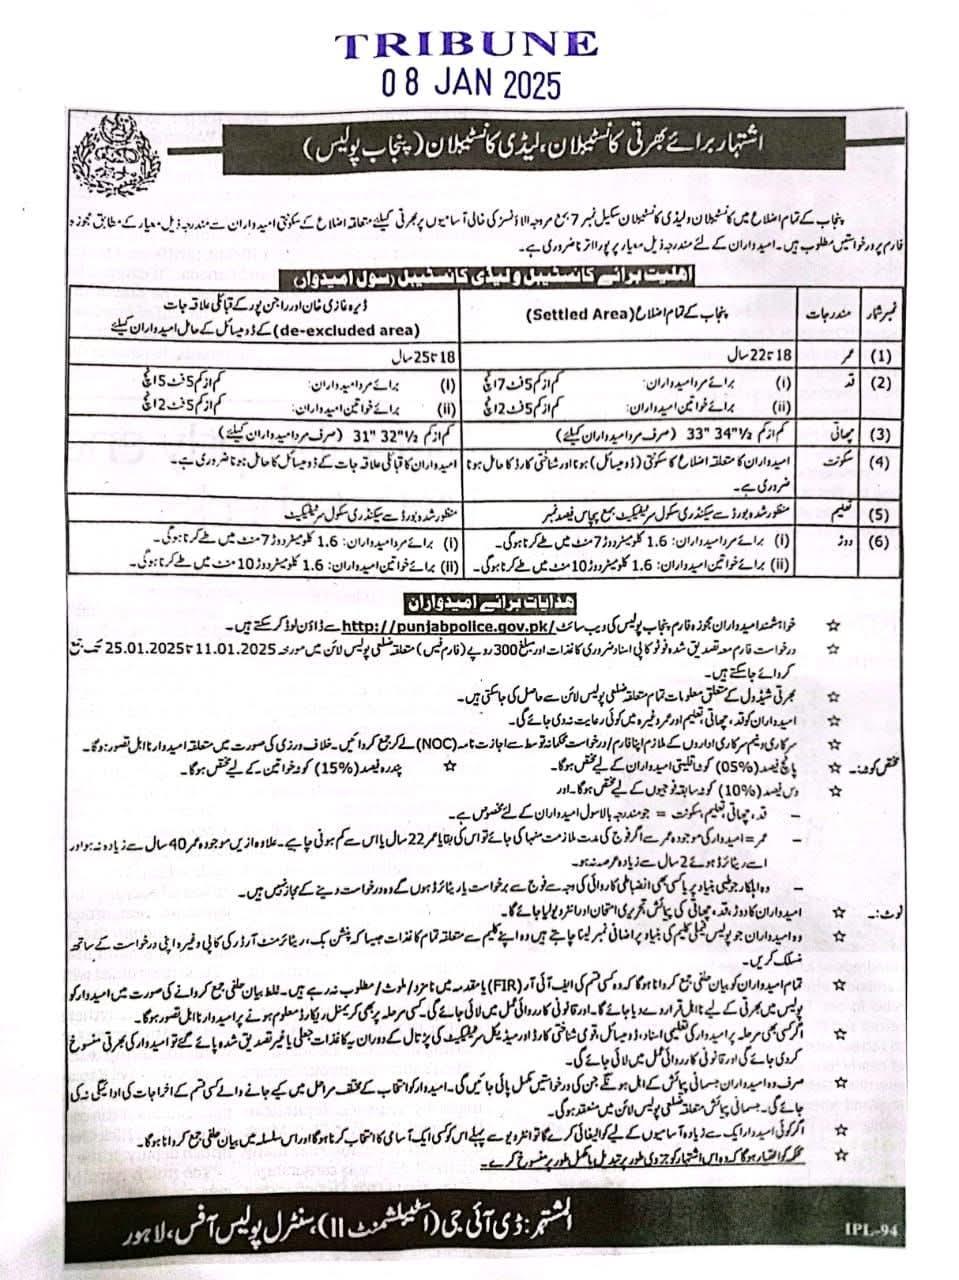 TRIBUNE
08 JAN 2025
اشتہار برائے بھرتی کانسٹیبلان، لیڈی کانسٹیبلان (پنجاب پولیس)
پنجاب کے تمام اضلاع میں کانسٹیبلان ولیڈی کانسٹیبلان سکیل نمبر 7 بمع مروجہ الاؤنسز کی خالی آسامیوں پر بھرتی کیلئے متعلق اضلاع کے سکونتی امیدواران سے مندرجہ ذیل معیار کے مطابق مجوزہ
فارم پر درخواستیں مطلوب ہیں۔ امیدواران کے لئے مندرجہ ذیل معیار پر پورا اترنا ضروری ہے۔
اہلیت برائے کانسٹیبل و لیڈی کانسٹیبل (سول امیدوار)
نمبر شمار مندرجات پنجاب کے تمام اضلاع (Settled Area) ڈیرہ غازی خان اور راجن پور کے قبائلی علاقہ جات
(de-excluded area) کے ڈومیسائل کے حامل امیدواران کیلئے
(1) عمر 18 تا 22 سال 18 تا 25 سال
(2) قد (i) برائے مرد امیدواران: کم از کم 5 فٹ 7 انچ (i) برائے مرد امیدواران: کم از کم 5 فٹ 5 انچ
(ii) برائے خواتین امیدواران: کم از کم 5 فٹ 2 انچ (ii) برائے خواتین امیدواران: کم از کم 5 فٹ 2 انچ
(3) چھاتی کم از کم 33" 34½" (صرف مرد امیدواران کیلئے) کم از کم 31" 32½" (صرف مرد امیدواران کیلئے)
(4) سکونت امیدواران کا متعلقہ اضلاع کا سکونتی (ڈومیسائل) ہونا اور شناختی کارڈ کا حامل ہونا امیدواران کا قبائلی علاقہ جات کے ڈومیسائل کا حامل ہونا ضروری ہے۔
ضروری ہے۔
(5) تعلیم منظور شدہ بورڈ سے سیکنڈری سکول سرٹیفکیٹ بمع پچاس فیصد نمبر منظور شدہ بورڈ سے سیکنڈری سکول سرٹیفکیٹ
(6) دوڑ (i) برائے مرد امیدواران: 1.6 کلومیٹر دوڑ 7 منٹ میں طے کرنا ہوگی۔ (i) برائے مرد امیدواران: 1.6 کلومیٹر دوڑ 7 منٹ میں طے کرنا ہوگی۔
(ii) برائے خواتین امیدواران: 1.6 کلومیٹر دوڑ 10 منٹ میں طے کرنا ہوگی۔ (ii) برائے خواتین امیدواران: 1.6 کلومیٹر دوڑ 10 منٹ میں طے کرنا ہوگی۔
ہدایات برائے امیدواران
☆ خواہشمند امیدواران مجوزہ فارم پنجاب پولیس کی ویب سائٹ http://punjabpolice.gov.pk/ سے ڈاؤن لوڈ کر سکتے ہیں۔
☆ درخواست فارم معہ تصدیق شدہ فوٹو کاپی اسناد ضروری کاغذات اور مبلغ 300 روپے (فارم فیس) متعلقہ ضلعی پولیس لائن میں مورخہ 11.01.2025 تا 25.01.2025 تک جمع
کروائے جا سکتے ہیں۔
☆ بھرتی شیڈول کے متعلق معلومات تمام متعلقہ ضلعی پولیس لائن سے حاصل کی جا سکتی ہیں۔
☆ امیدواران کو قد، چھاتی، تعلیم اور عمر وغیرہ میں کوئی رعایت نہ دی جائے گی۔
☆ سرکاری و نیم سرکاری اداروں کے ملازم اپنا فارم/درخواست محکمانہ توسط سے اجازت نامہ (NOC) لے کر جمع کروائیں۔ خلاف ورزی کی صورت میں متعلقہ امیدوار نااہل تصور ہوگا۔
مختص کوٹہ:۔ ☆ پانچ فیصد (05%) کوٹہ اقلیتی امیدواران کے لیے مختص ہوگا۔ ☆ پندرہ فیصد (15%) کوٹہ خواتین کے لیے مختص ہوگا۔
☆ دس فیصد (10%) کوٹہ سابقہ فوجیوں کے لیے مختص ہوگا۔ اور
- قد، چھاتی، تعلیم، سکونت = جو مندرجہ بالا سول امیدواران کے لئے مخصوص ہے۔
- عمر = امیدوار کی موجودہ عمر سے اگر فوج کی مدت ملازمت منہا کی جائے تو اس کی بقایا عمر 22 سال یا اس سے کم ہونی چاہیے۔ علاوہ ازیں موجودہ عمر 40 سال سے زیادہ نہ ہو اور
اسے ریٹائرڈ ہوئے 2 سال سے زیادہ عرصہ نہ ہو۔
- وہ اہلکار جو طبی بنیاد پر یا کسی بھی انضباطی کاروائی کی وجہ سے فوج سے برخواست یا ریٹائرڈ ہوں گے وہ درخواست دینے کے مجاز نہیں ہیں۔
نوٹ:۔ ☆ امیدواران کا دوڑ، قد، چھاتی کی پیمائش، تحریری امتحان اور انٹرویو لیا جائے گا۔
☆ وہ امیدواران جو پولیس فیملی کلیم کی بنیاد پر اضافی نمبر لینا چاہتے ہیں وہ اپنے کلیم سے متعلقہ تمام کاغذات جیسا کہ پنشن بک، ریٹائرمنٹ آرڈر کی کاپی وغیرہ اپنی درخواست کے ساتھ
منسلک کریں۔
☆ تمام امیدواران کو بیان حلفی جمع کروانا ہوگا کہ وہ کسی قسم کی ایف آئی آر (FIR) یا مقدمہ میں نامزد/ملوث/مطلوب نہ رہے ہیں۔ غلط بیان حلفی جمع کروانے کی صورت میں امیدوار کو
پولیس میں بھرتی کے لیے نااہل قرار دے دیا جائے گا۔ اور قانونی کاروائی عمل میں لائی جائے گی۔ کسی مرحلہ پر بھی کریمنل ریکارڈ معلوم ہونے پر امیدوار نااہل تصور ہوگا۔
☆ اگر کسی بھی مرحلہ پر امیدوار کی تعلیمی اسناد، ڈومیسائل، قومی شناختی کارڈ اور میڈیکل سرٹیفکیٹ کی پڑتال کے دوران یہ کاغذات جعلی یا غیر تصدیق شدہ پائے گئے تو امیدوار کی بھرتی منسوخ
کر دی جائے گی اور قانونی کارروائی عمل میں لائی جائے گی۔
☆ صرف وہ امیدواران جسمانی پیمائش کے اہل ہونگے جن کی درخواستیں مکمل پائی جائیں گی۔ امیدوار کو انتخاب کے مختلف مراحل میں کیے جانے والے کسی قسم کے اخراجات کی ادائیگی نہ کی
جائے گی۔ جسمانی پیمائش متعلقہ ضلعی پولیس لائن میں منعقد ہوگی۔
☆ اگر کوئی امیدوار ایک سے زیادہ آسامیوں کے لیے کوالیفائی کرے گا تو انٹرویو سے پہلے اس کو کسی ایک آسامی کا انتخاب کرنا ہوگا اور اس سلسلہ میں بیان حلفی جمع کروانا ہوگا۔
☆ محکمہ کو اختیار ہوگا کہ وہ اس اشتہار کو جزوی طور پر تبدیل یا مکمل طور پر منسوخ کرے۔
المشتہر: ڈی آئی جی (اسٹیبلشمنٹ II)، سنٹرل پولیس آفس، لاہور
IPL-94